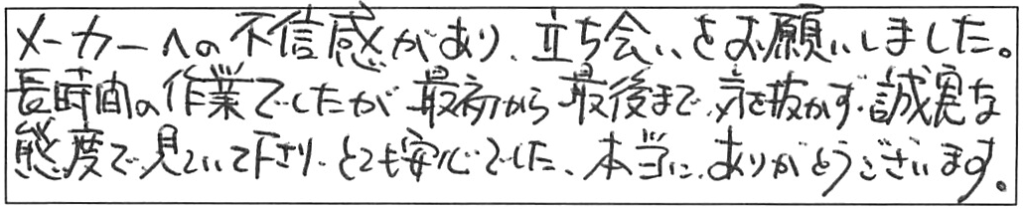 メーカーへの不信感があり、立ち会いをお願いしました。
長時間の作業でしたが最初から最後まで、気を抜かず、誠実な
態度で見ていて下さり、とても安心でした、本当に、ありがとうございます。